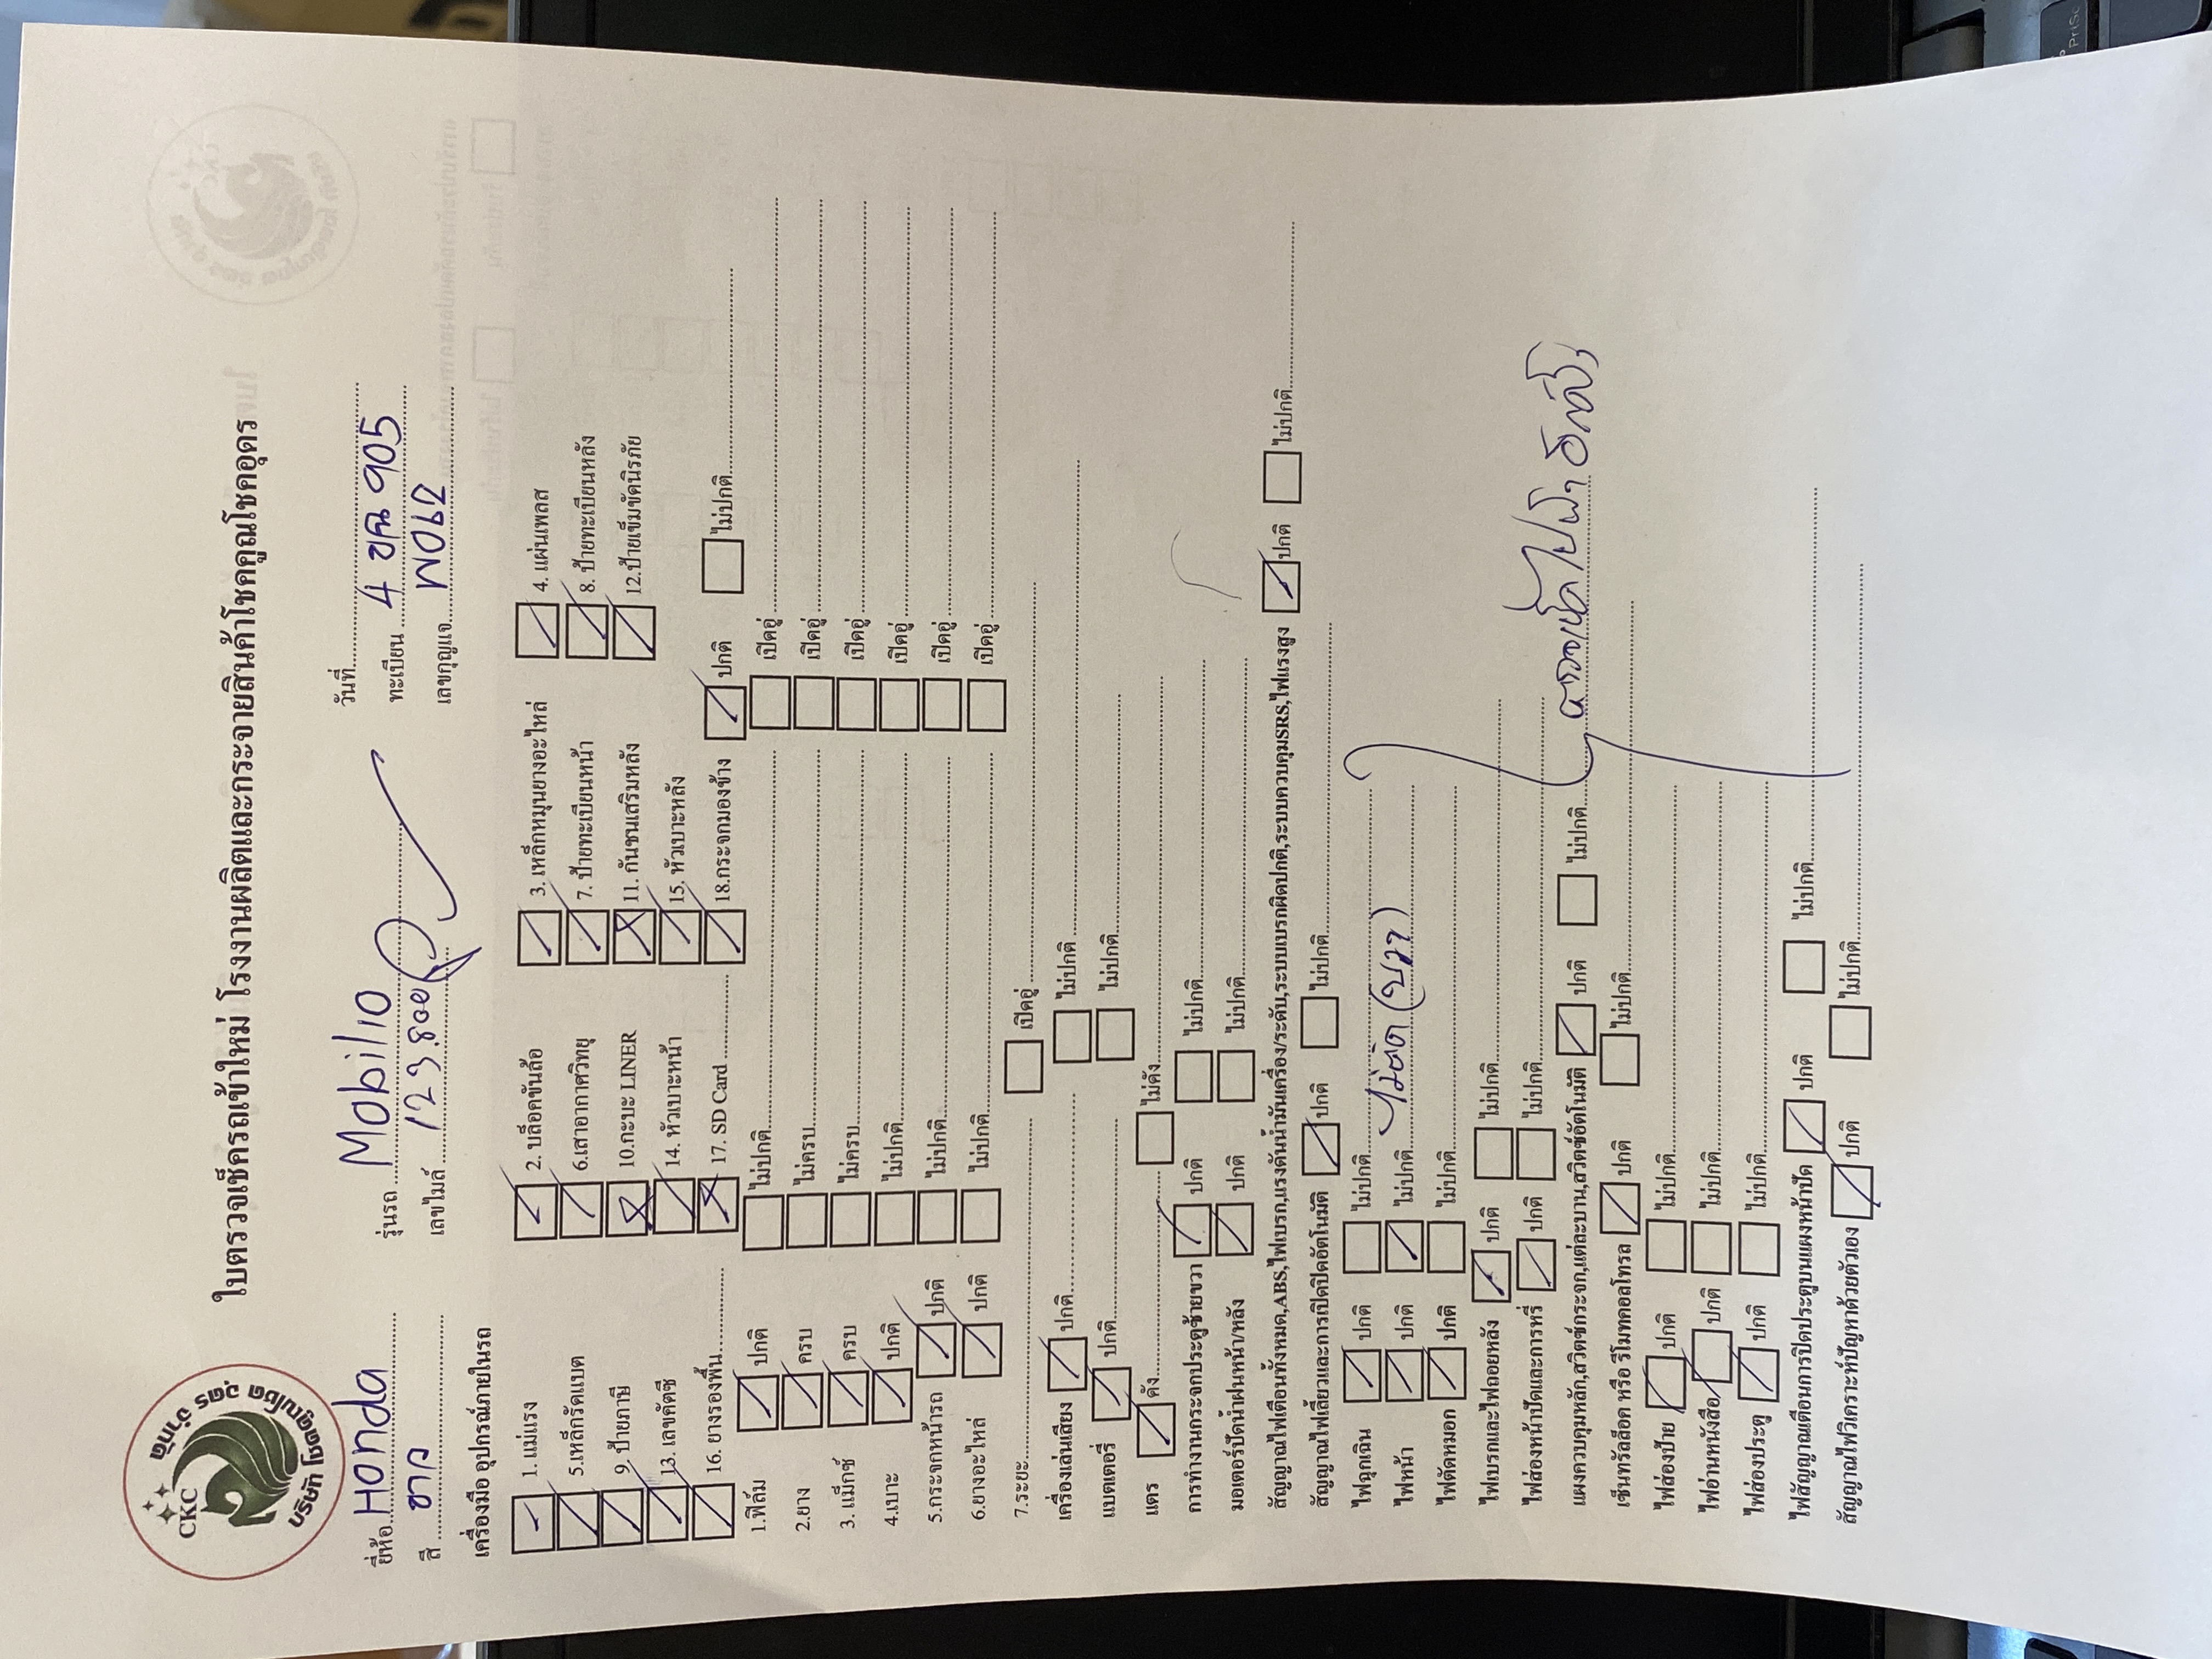 CKC
บริษัท โชคคูณโชค อุดร จำกัด
ใบตรวจเช็ครถเข้าใหม่ โรงงานผลิตและกระจายสินค้าโชคคูณโชคอุดร
วันที่
ยี่ห้อ Honda รุ่นรถ Mobilio ทะเบียน 4 ขฌ 905
สี ขาว เลขไมล์ 123,800 เลขกุญแจ W012
เครื่องมือ อุปกรณ์ภายในรถ
1. แม่แรง 2. บล็อคขันล้อ 3. เหล็กหมุนยางอะไหล่ 4. แผ่นเพลส
5.เหล็กรัดแบต 6.เสาอากาศวิทยุ 7. ป้ายทะเบียนหน้า 8. ป้ายทะเบียนหลัง
9. ป้ายภาษี 10.กะบะ LINER 11. กันชนเสริมหลัง 12.ป้ายเข็มขัดนิรภัย
13. เลขคัดซี 14. หัวเบาะหน้า 15. หัวเบาะหลัง
16. ยางรองพื้น 17. SD Card 18.กระจกมองข้าง ปกติ ไม่ปกติ
1.ฟิล์ม ปกติ ไม่ปกติ เปิดอู่
2.ยาง ครบ ไม่ครบ เปิดอู่
3. แม็กซ์ ครบ ไม่ครบ เปิดอู่
4.เบาะ ปกติ ไม่ปกติ เปิดอู่
5.กระจกหน้ารถ ปกติ ไม่ปกติ เปิดอู่
6.ยางอะไหล่ ปกติ ไม่ปกติ เปิดอู่
7.ระยะ เปิดอู่
เครื่องเล่นเสียง ปกติ ไม่ปกติ
แบตเตอรี่ ปกติ ไม่ปกติ
แตร ดัง ไม่ดัง
การทำงานกระจกประตูซ้ายขวา ปกติ ไม่ปกติ
มอเตอร์ปัดน้ำฝนหน้า/หลัง ปกติ ไม่ปกติ
สัญญาณไฟเตือนทั้งหมด,ABS,ไฟเบรก,แรงดันน้ำมันเครื่อง/ระดับ,ระบบเบรกผิดปกติ,ระบบควบคุมSRS,ไฟแรงสูง ปกติ ไม่ปกติ
สัญญาณไฟเลี้ยวและการเปิดปิดอัตโนมัติ ปกติ ไม่ปกติ
ไฟฉุกเฉิน ปกติ ไม่ปกติ
ไฟหน้า ปกติ ไม่ปกติ ไม่ติด (ขวา)
ไฟตัดหมอก ปกติ ไม่ปกติ
ไฟเบรกและไฟถอยหลัง ปกติ ไม่ปกติ
ไฟส่องหน้าปัดและการหรี่ ปกติ ไม่ปกติ
แผงควบคุมหลัก,สวิตช์กระจก,แต่ละบาน,สวิตซ์อัตโนมัติ ปกติ ไม่ปกติ
เซ็นทรัลล็อค หรือ รีโมทคอลโทรล ปกติ ไม่ปกติ
ไฟส่องป้าย ปกติ ไม่ปกติ
ไฟอ่านหนังสือ ปกติ ไม่ปกติ
ไฟส่องประตู ปกติ ไม่ปกติ
ไฟสัญญาณเตือนการปิดประตูบนแผงหน้าปัด ปกติ ไม่ปกติ
สัญญาณไฟวิเคราะห์ปัญหาด้วยตัวเอง ปกติ ไม่ปกติ